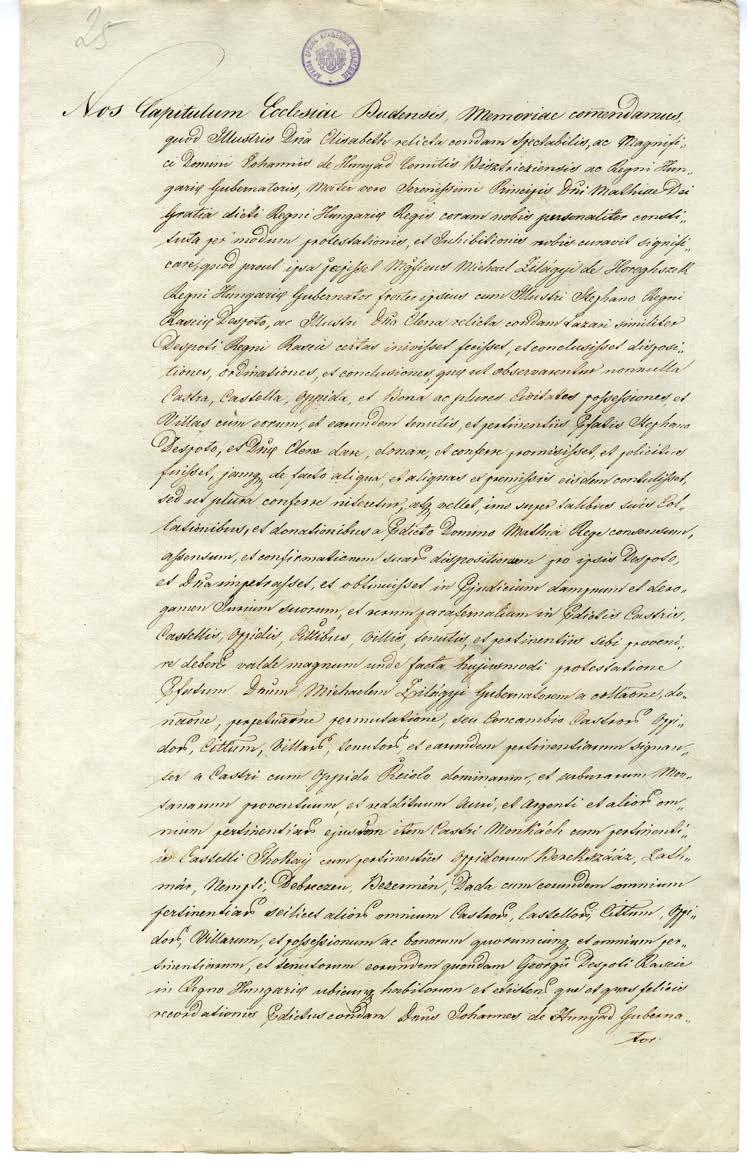 25
Nos Capitulum Ecclesiae Budensis, Memoriae comendamus,
quod Illustris Dna Elisabeth relicta condam Spectabilis, ac Magnifi„
ci Domini Johannis de Hunyad Comitis Bisztricziensis ac Regni Hun„
garię Gubernatoris, Mater vero Serenissimi Principis Dni Mathiae Dei
Gratia dicti Regni Hungarię Regis coram nobis personaliter consti„
tuta per modum protestationis, et Inhibitionis nobis curavit signifi„
care, quod prout ipsa Mgficus Michael Zilágyi de Horoghszek
Regni Hungarię Gubernator frater ipsius cum Illustri Stephano Regni
Rascię Despoto, ac Illustri Dna Elena relicta condam Lazari similiter
Despoti Regni Rascie certas inivisset fecisset, et conclusisset disposi„
tiones, ordinationes, et conclusiones, quę ut observarentur nonnulla
Castra, Castella, Oppida, et Bona ac plures Civitates possessiones, et
Villas cum eorum, et earundem tenutis, et pertinentiis Pfatis Stephano
Despoto, et Dnę Elene dare, donare, et conferre promisisset, et policitus
fuisset, jamq de facto aliqua, et aliquas ex premissis eisdem contulisset,
sed ut plura conferre niteretur, atq vellet, imo super talibus suis Col„
lationibus, et donationibus a Pdicto Domino Mathia Rege consensum,
assensum, et confirmationem suarum dispositionem pro ipsis Despoto,
et Dna impetrasset, et obtinuisset in Pjudicium dampnum et dero„
gamen Jurium suorum, et rerum parafernalium in Pdictis Castris,
Castellis, Oppidis, Villis, tenutis, et pertinentiis sibi proveni„
re deben valde magnum unde facta hujusmodi protestatione
Pfatum Dnum Michaelem Zilágyi Gubernatorem a collaone, do„
naone, permutatione, seu Concambio Castror Oppi„
dor, Cittum, Villar, tenutor, et earundem pertinentiarum signan„
ter a Castri cum Oppido dominarum, et urburarum Mon„
tanarum proventuum, et reddituum Auri, et Argenti et alior om„
nium pertinentiar ejusdem item Castri Monkách cum pertinenti„
is Castelli Thokaÿ cum pertinentiis Oppidorum Berekszááz, Zath„
már, Nempti, Debreczen, Bezermén, Dada cum eorundem omnium
pertinentiar scilicet alior omnium Castror, Castellor, Cittum, Oppi„
dor, Villarum, et possessionum ac bonorum quorumcunq et omnium per„
tinentiarum, et tenutorum eorundem quondam Georgii Despoti Rascie
in Regno Hungarię ubicunq habitorum et existen que et quas felicis
recordationis Pdictus condam Dnus Johannes de Hunyad Guberna„
tor